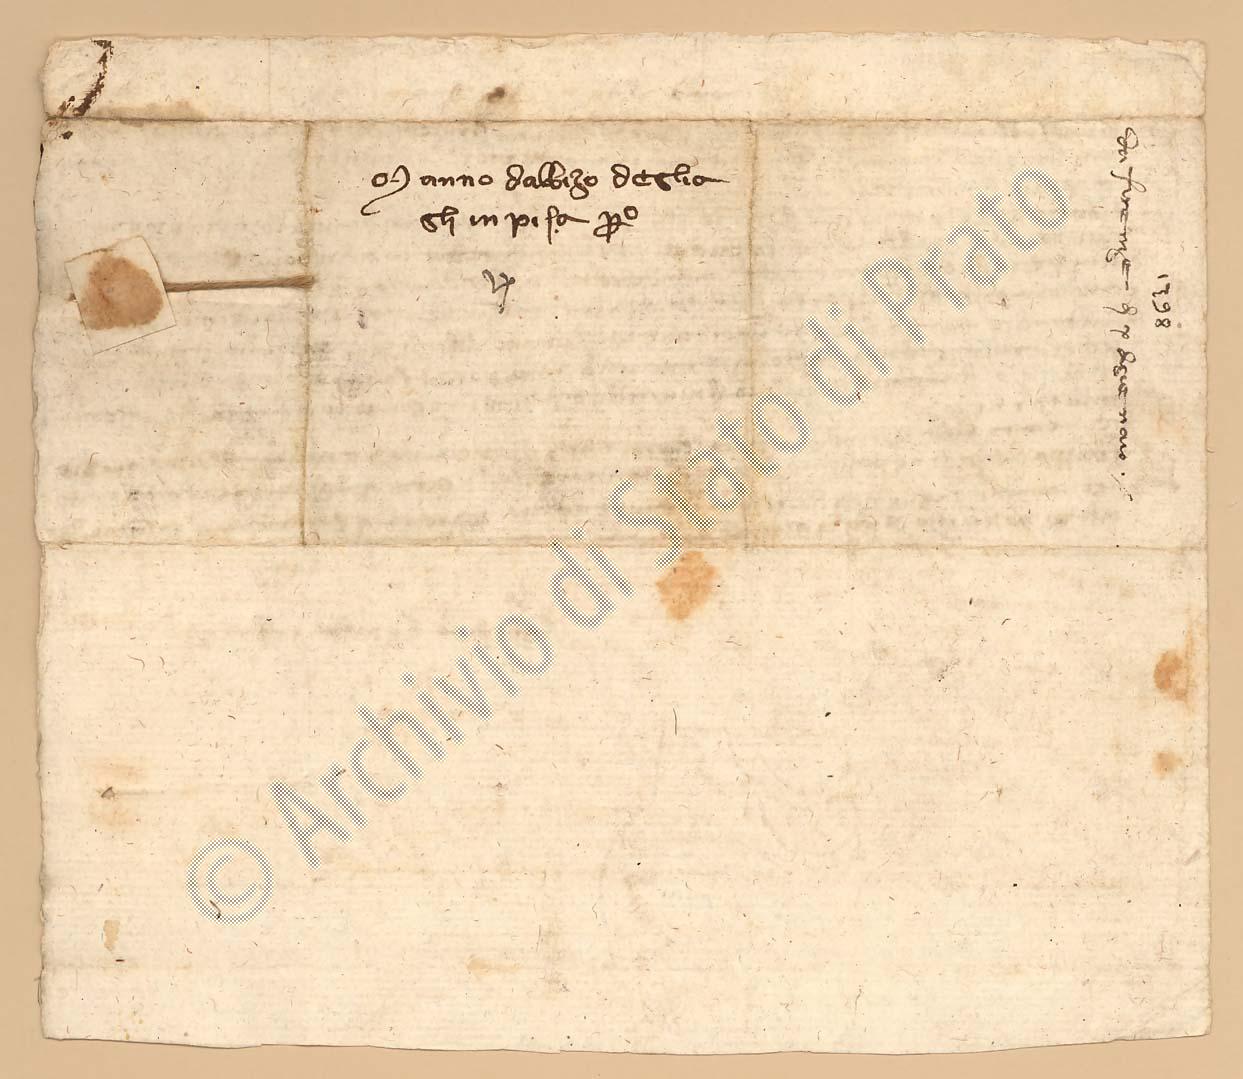 Manno dalbizo deglia
gli in pisa pro
da firenze
di
gennaio
1398
© Archivio di Stato di Prato